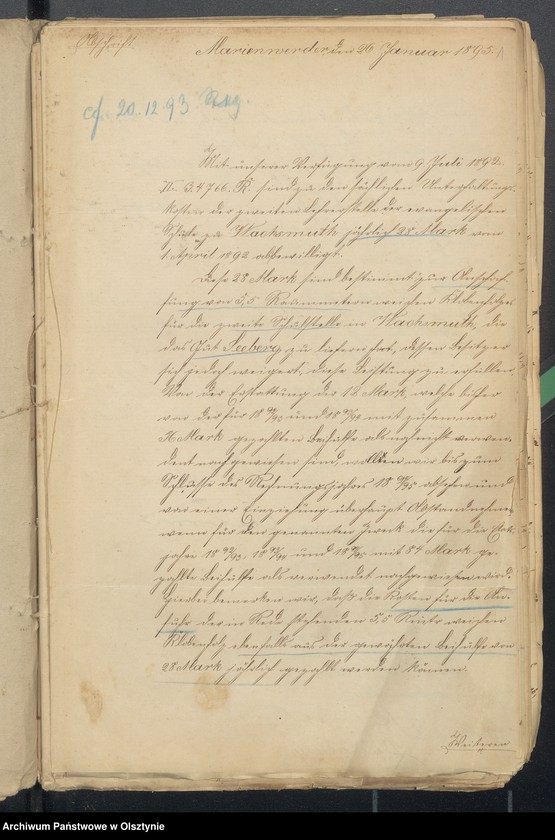 Abschrift
Marienwerder, den 26 Januar 1895.
cf. 20.12.93
Mit unserer Verfügung vom 9. Juli 1892.
II. 34766. R. sind zu den sächlichen Unterhaltungs-
kosten der zweiten Lehrerstelle der evangelischen
Schule zu Wachsmuth jährlich 28 Mark vom
1 April 1892 ab bewilligt.
Diese 28 Mark sind bestimmt zur Anschaf-
fung von 3,5 Raummetern weichen Klobenholzes
für die zweite Schulstelle in Wachsmuth, die
das Gut Seeberg zu liefern hat, dessen Besitzer
sich jedoch weigert, diese Leistung zu erfüllen.
Von der Erstattung der 12 Mark, welche bisher
von der für 18 92/93 und 18 93/94 mit zusammen
56 Mark gezahlten Beihülfe als nicht verwen-
det nachgewiesen sind, wollen wir bis zum
Schlusse des Rechnungsjahres 18 94/95 absehen und
von einer Einziehung überhaupt Abstand nehmen
wenn für den genannten Zweck die für die Etats-
jahre 18 92/93, 18 93/94 und 18 94/95 mit 84 Mark ge-
zahlte Beihülfe als verwendet nachgewiesen wird.
Hierbei bemerken wir, daß die Kosten für die An-
fuhr der in Rede stehenden 3,5 weichen
Klobenholz ebenfalls aus der gewährten Beihülfe von
28 Mark jährlich gezahlt werden können.
Weiteren
Archiwum Państwowe w Olsztynie